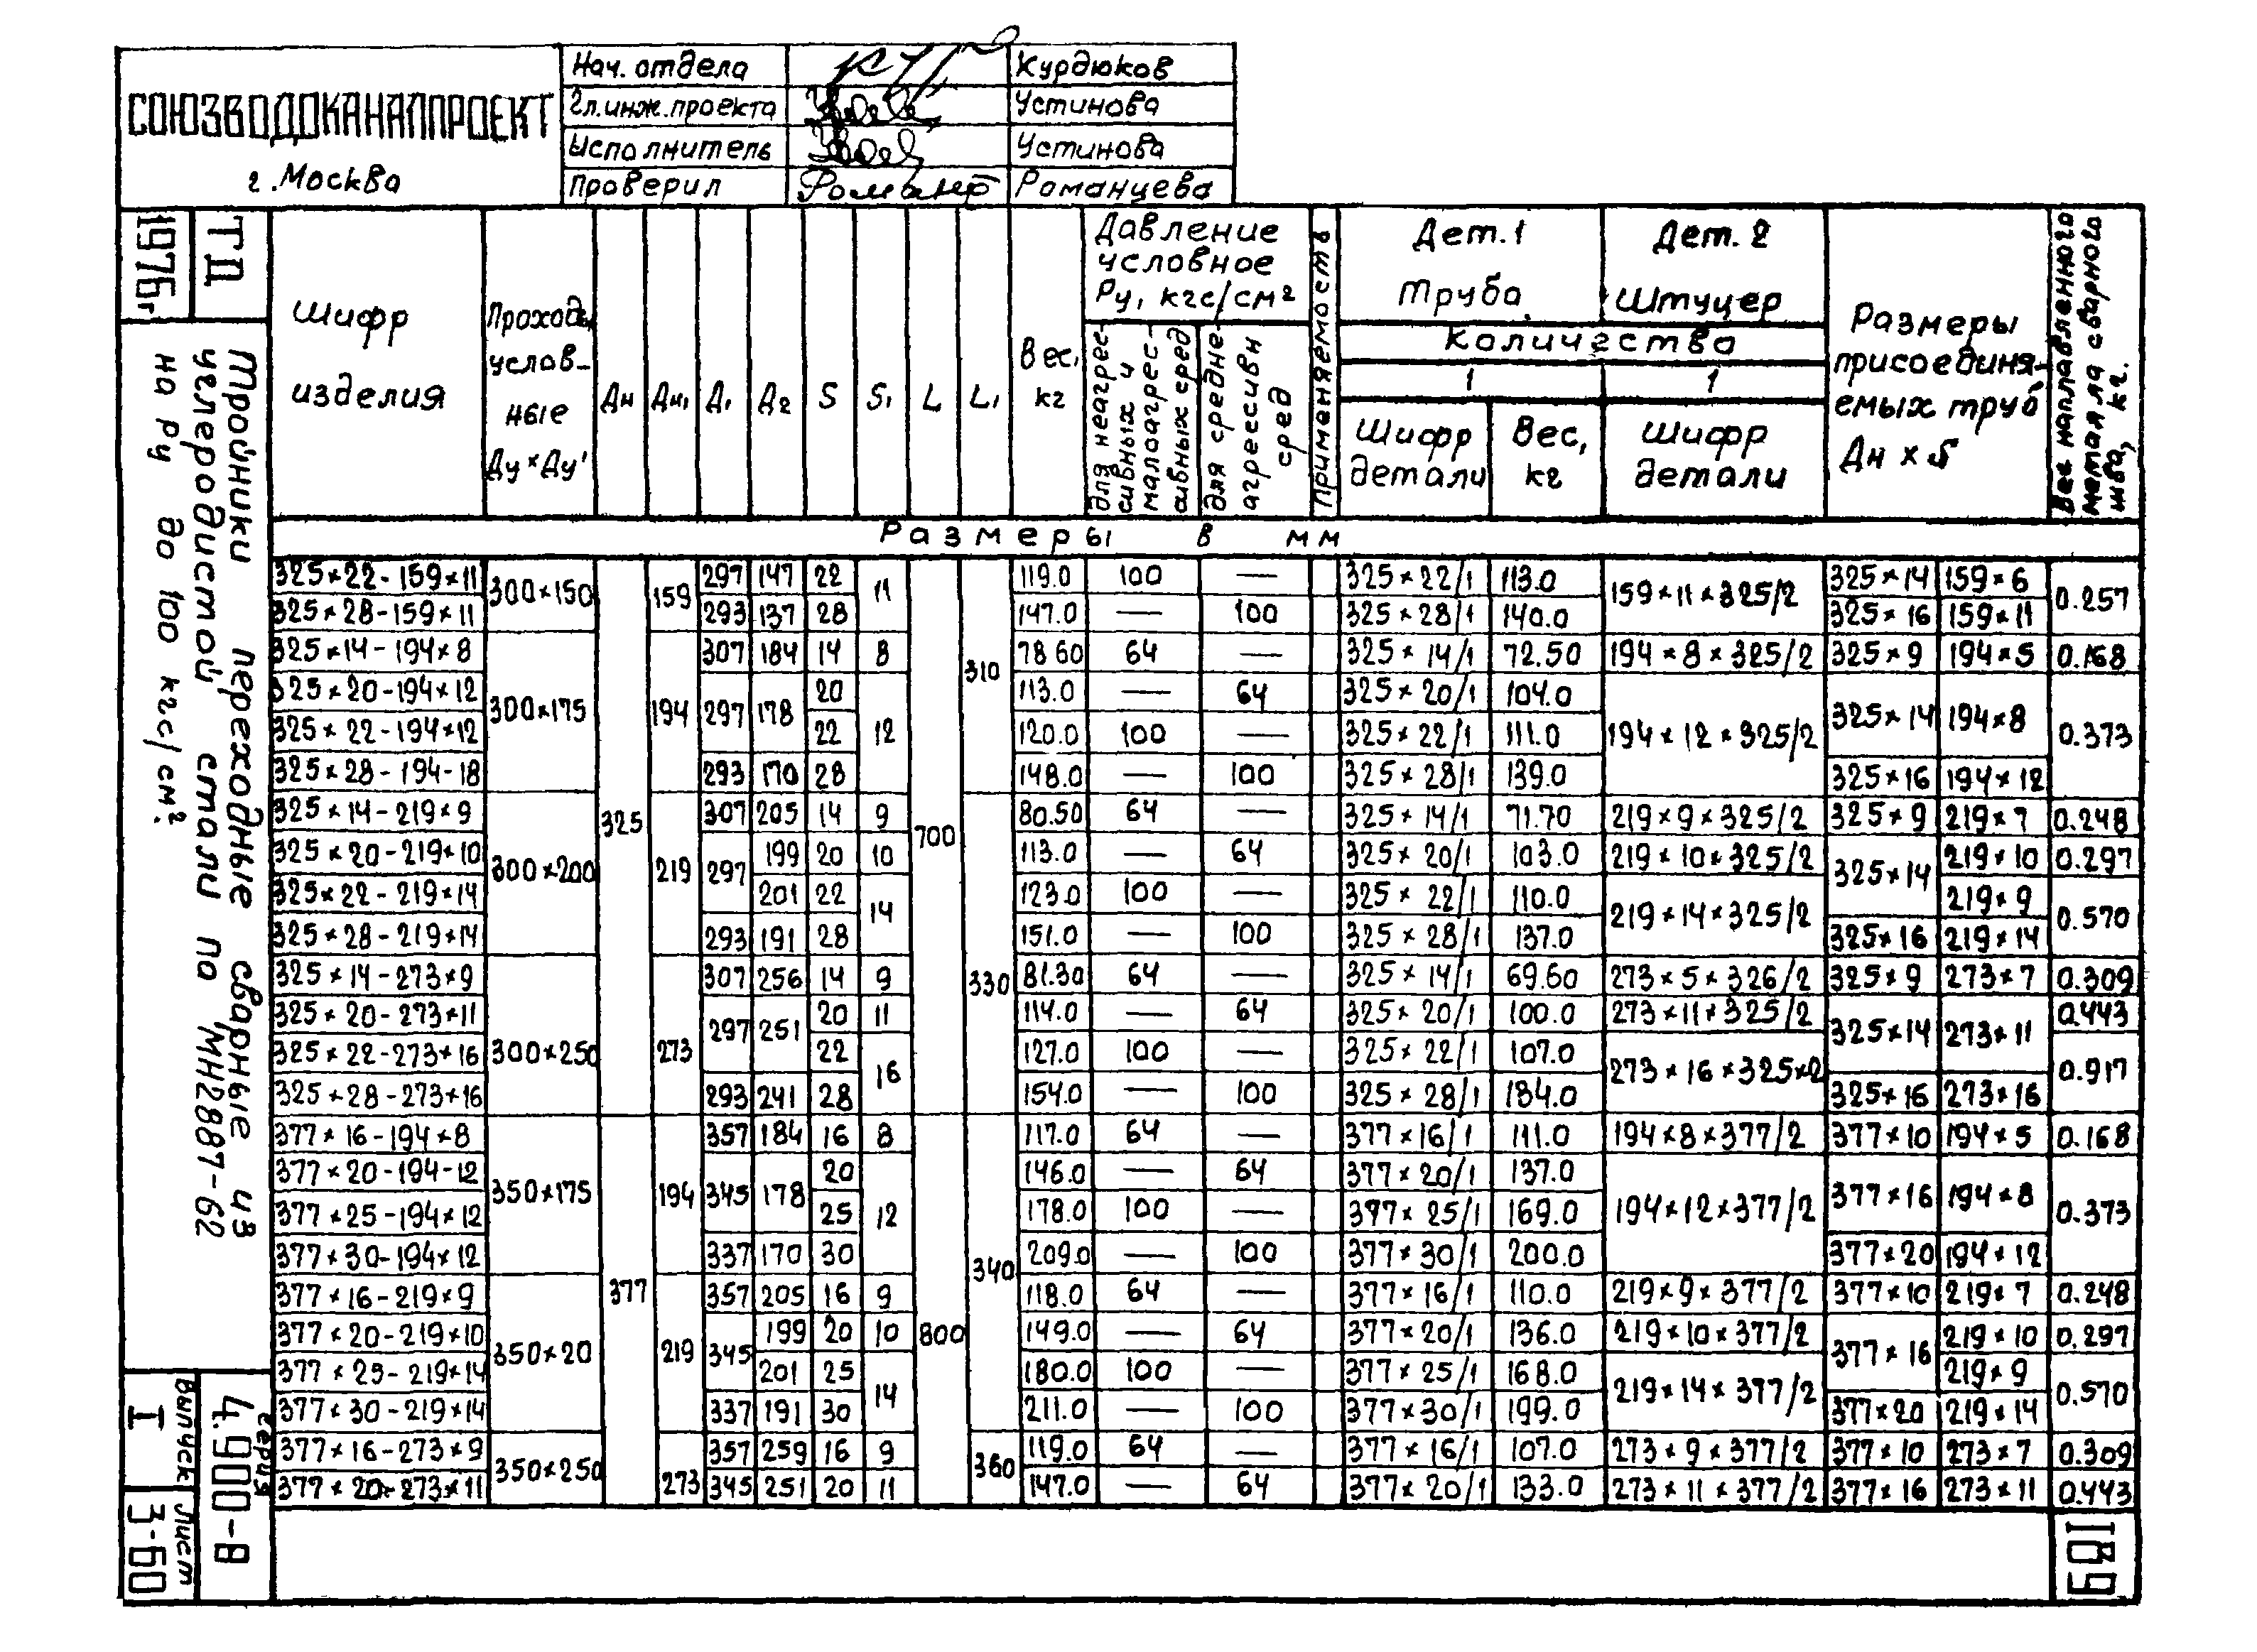 СОЮЗВОДОКАНАЛПРОЕКТ
г. Москва
Нач. отдела Курдюков
Гл. инж. проекта Устинова
Исполнитель Устинова
Проверил Романцева
ТД
1976г
Тройники переходные сварные из
углеродистой стали по МН2887-62
на Ру до 100 кгс/см².
Серия
4.900-8
Выпуск I
Лист 3-60
Шифр изделия
Проходы условные Ду×Ду'
Дн
Дн₁
Д₁
Д₂
S
S₁
L
L₁
Вес, кг
Давление условное Ру, кгс/см²
для неагрессивных и малоагрессивных сред
для среднеагрессивн сред
Применяемость
Дет. 1 Труба
Дет. 2 Штуцер
Количество
1 1
Шифр детали
Вес, кг
Шифр детали
Размеры присоединяемых труб Дн × S
Вес наплавленного металла сварного шва, кг.
Размеры в мм
325×22-159×11 300×150 325 159 297 147 22 11 700 310 119.0 100 — 325×22/1 113.0 159×11×325/2 325×14 159×6 0.257
325×28-159×11 293 137 28 147.0 — 100 325×28/1 140.0 325×16 159×11
325×14-194×8 300×175 194 307 184 14 8 78.60 64 — 325×14/1 72.50 194×8×325/2 325×9 194×5 0.168
325×20-194×12 297 178 20 12 113.0 — 64 325×20/1 104.0 194×12×325/2 325×14 194×8 0.373
325×22-194×12 22 120.0 100 — 325×22/1 111.0
325×28-194-18 293 170 28 148.0 — 100 325×28/1 139.0 325×16 194×12
325×14-219×9 300×200 219 307 205 14 9 330 80.50 64 — 325×14/1 71.70 219×9×325/2 325×9 219×7 0.248
325×20-219×10 297 199 20 10 113.0 — 64 325×20/1 103.0 219×10×325/2 325×14 219×10 0.297
325×22-219×14 201 22 14 123.0 100 — 325×22/1 110.0 219×14×325/2 219×9 0.570
325×28-219×14 293 191 28 151.0 — 100 325×28/1 137.0 325×16 219×14
325×14-273×9 300×250 273 307 256 14 9 81.30 64 — 325×14/1 69.60 273×5×326/2 325×9 273×7 0.309
325×20-273×11 297 251 20 11 114.0 — 64 325×20/1 100.0 273×11×325/2 325×14 273×11 0.443
325×22-273×16 22 16 127.0 100 — 325×22/1 107.0 273×16×325×2 0.917
325×28-273×16 293 241 28 154.0 — 100 325×28/1 134.0 325×16 273×16
377×16-194×8 350×175 377 194 357 184 16 8 800 340 117.0 64 — 377×16/1 111.0 194×8×377/2 377×10 194×5 0.168
377×20-194-12 345 178 20 12 146.0 — 64 377×20/1 137.0 194×12×377/2 377×16 194×8 0.373
377×25-194×12 25 178.0 100 — 397×25/1 169.0
377×30-194×12 337 170 30 209.0 — 100 377×30/1 200.0 377×20 194×12
377×16-219×9 350×20 219 357 205 16 9 118.0 64 — 377×16/1 110.0 219×9×377/2 377×10 219×7 0.248
377×20-219×10 345 199 20 10 149.0 — 64 377×20/1 136.0 219×10×377/2 377×16 219×10 0.297
377×25-219×14 201 25 14 180.0 100 — 377×25/1 168.0 219×14×377/2 219×9 0.570
377×30-219×14 337 191 30 211.0 — 100 377×30/1 199.0 377×20 219×14
377×16-273×9 350×250 273 357 259 16 9 360 119.0 64 — 377×16/1 107.0 273×9×377/2 377×10 273×7 0.309
377×20-273×11 345 251 20 11 147.0 — 64 377×20/1 133.0 273×11×377/2 377×16 273×11 0.443